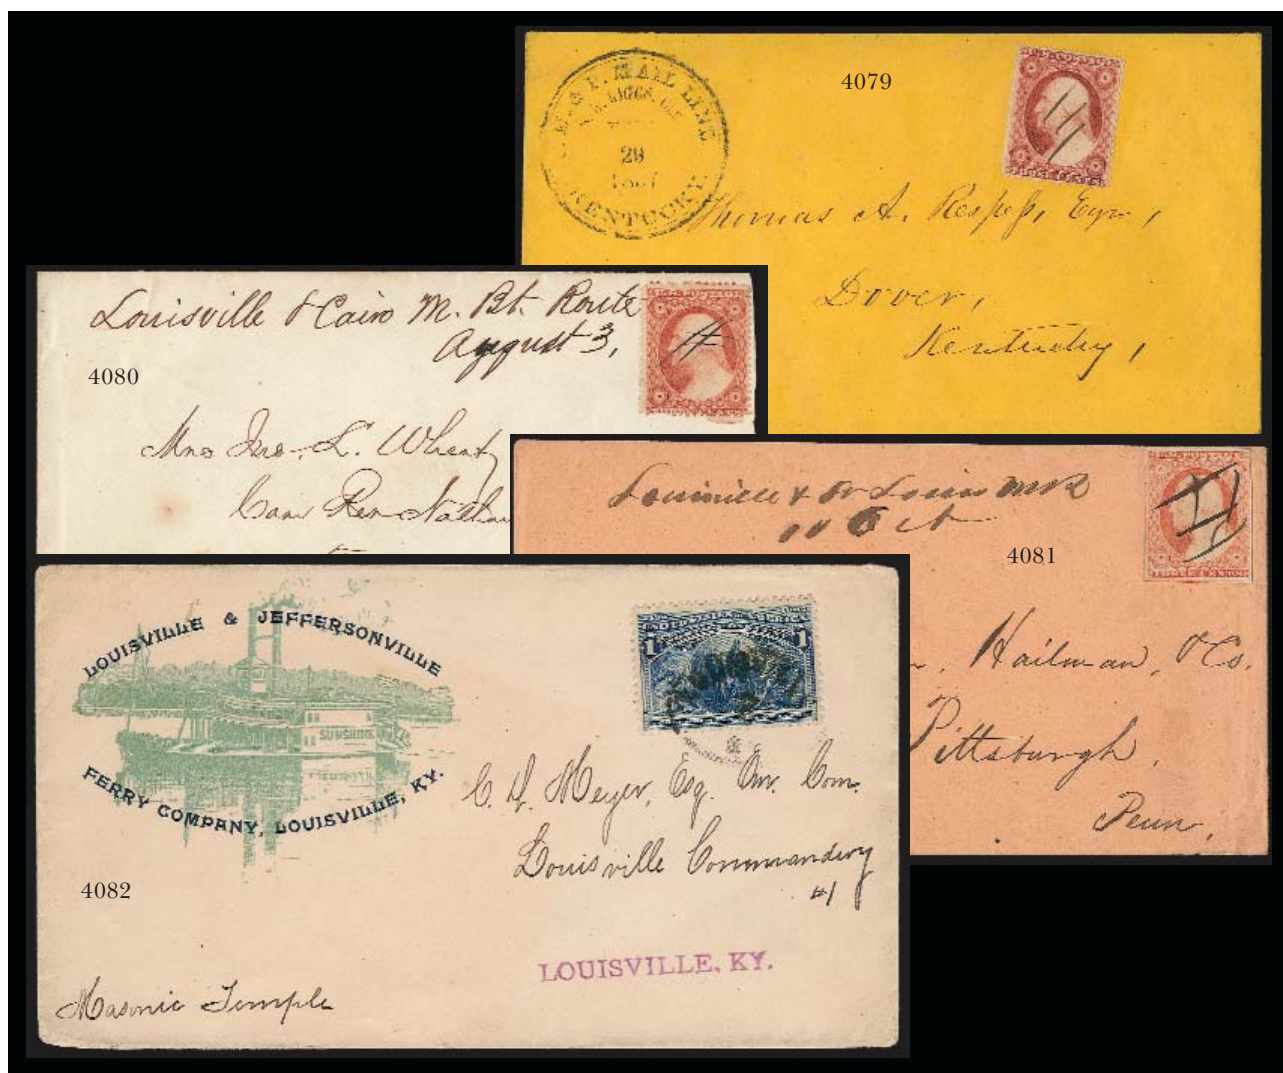 4079
MAIL LINE
29
KENTUCKY.
Thomas A. Respess, Eqr,
Dover,
Kentucky,
Louisville & Cairo M. Bt. Route
August 3,
4080
Mrs Jno. L. Wheat
THREE CENTS
4081
Hailman, & Co.
Pittsburgh,
Penn,
LOUISVILLE & JEFFERSONVILLE
FERRY COMPANY, LOUISVILLE, KY.
1 1
C. H. Meyer, Esq. Em. Com.
Louisville Commandery
#1
4082
LOUISVILLE, KY.
Masonic Temple